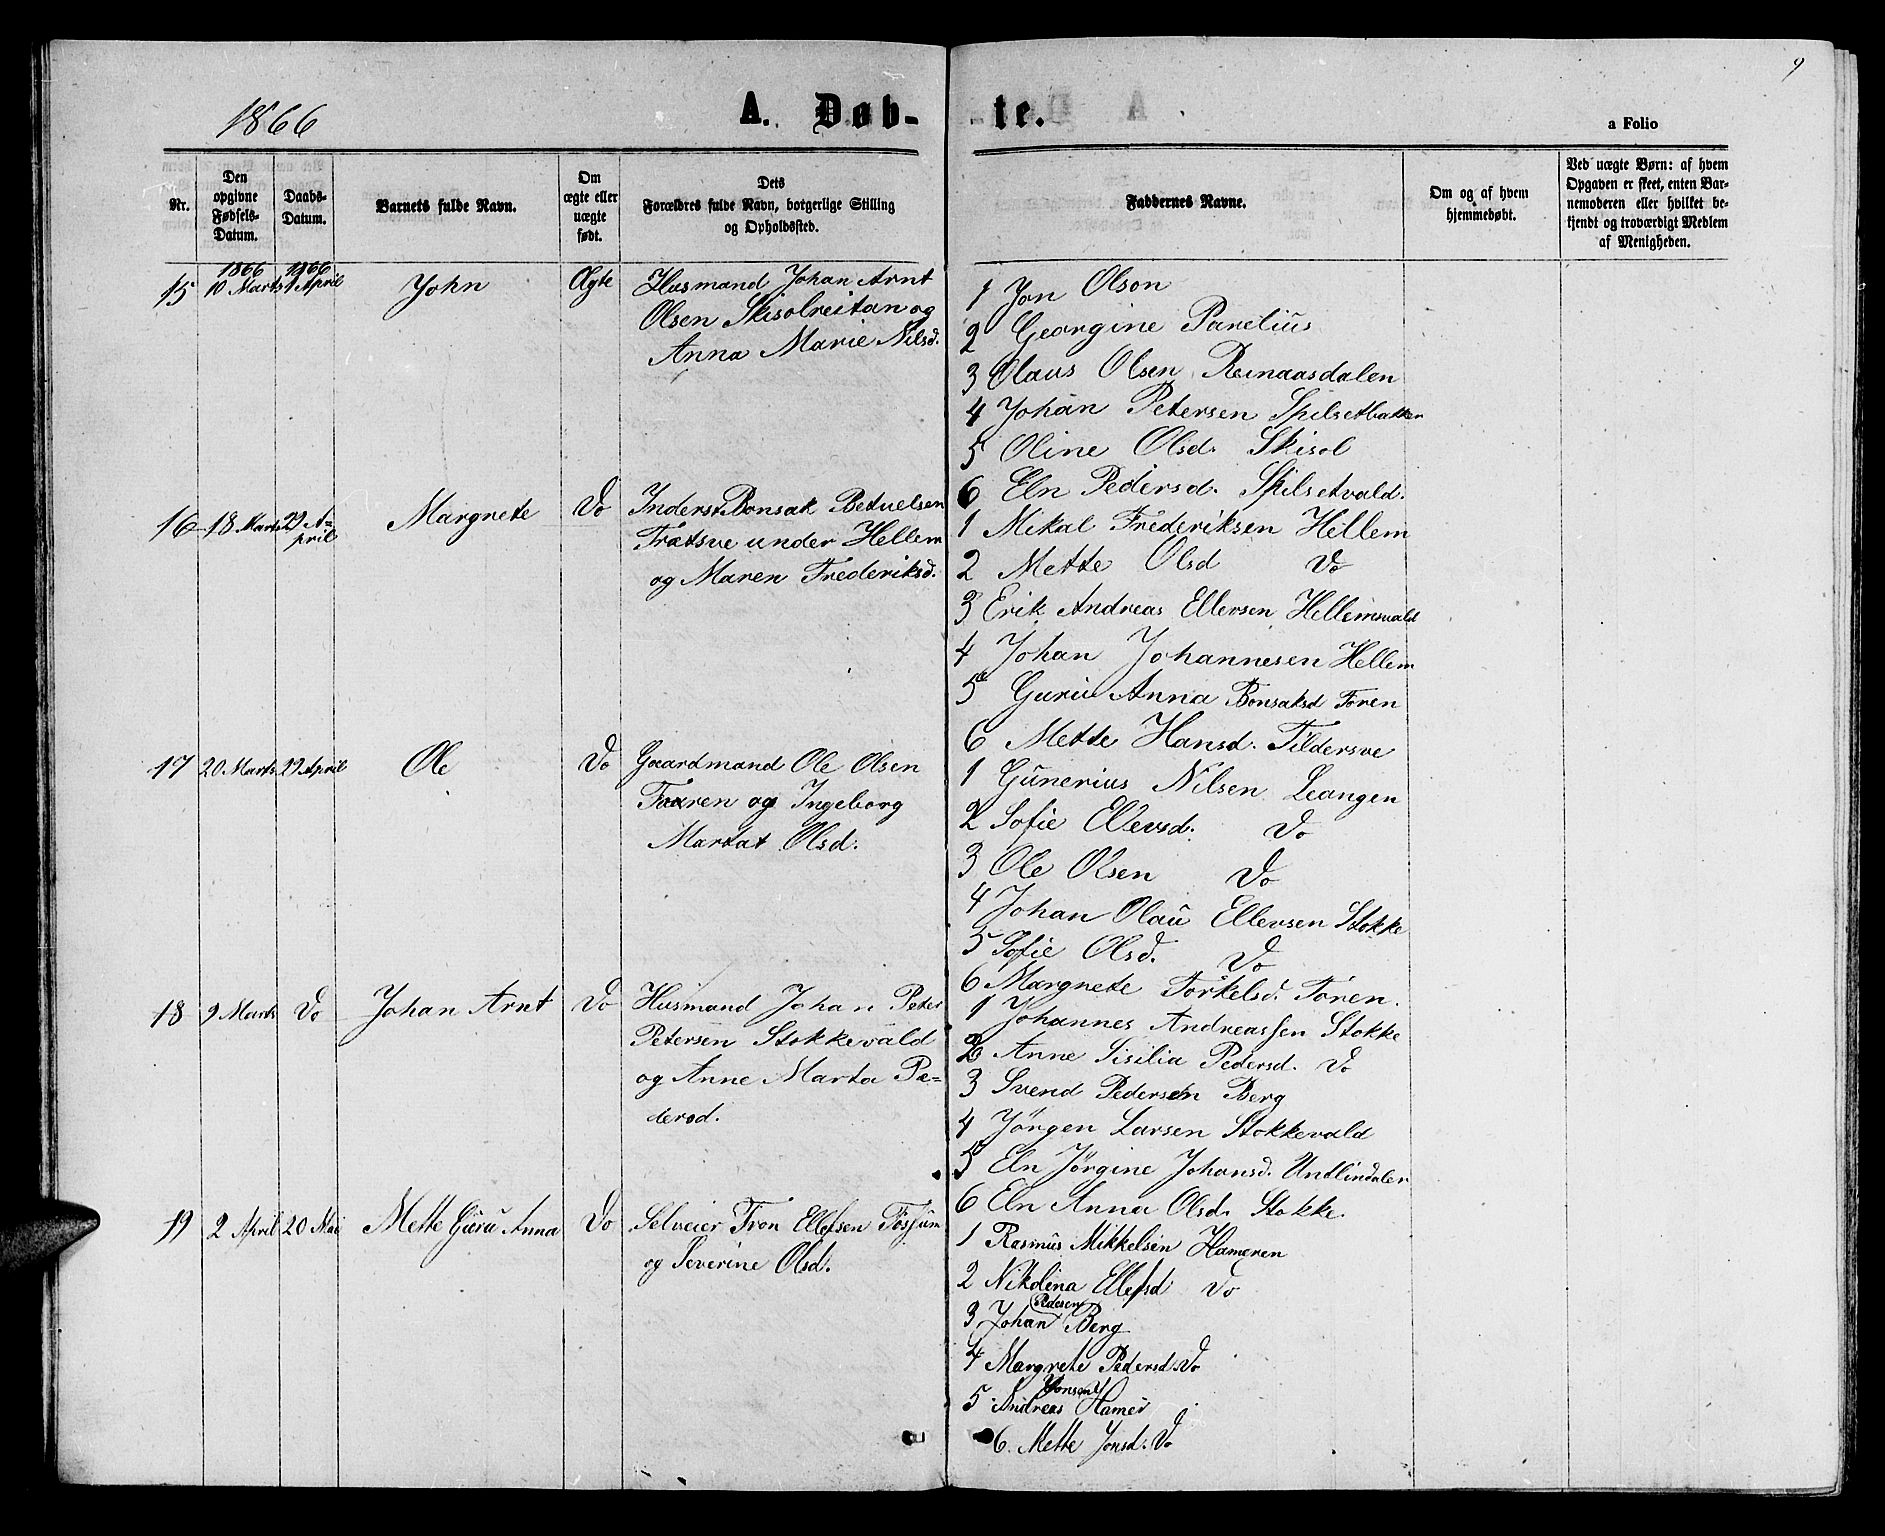 9
1866
A. Døb-
te.
a Folio
Nr.
Den
opgivne
Fødsels-
Datum.
Daabs-
Datum.
Barnets fulde Navn.
Om
ægte eller
uægte
født.
Dets
Forældres fulde Navn, borgerlige Stilling
og Opholdssted.
Faddernes Navne.
Om og af hvem
hjemmedøbt.
Ved uægte Børn: af hvem
Opgaven er skeet, enten Bar-
nemoderen eller hvilket be-
kjendt og troværdigt Medlem
af Menigheden.
1866 1966
15 10 Marts 1 April John Ægte Husmand Johan Arnt
Olsen Skisolreitan og
Anna Marie Nilsd.
1 Jon Olson
2 Georgine Parelius
3 Olaus Olsen Reinaasdalen
4 Johan Petersen Spilsetbakken
5 Oline Olsd. Skisol
6 Eln Pedersd. Spilsetvald.
16 18 Marts 29 A=
pril Margnete Do Inderst Bonsak Betuelsen
Trætsve under Hellem
og Maren Frederiksd.
1 Mikal Frederiksen Hellem
2 Mette Olsd Do
3 Erik Andreas Ellevsen Hellemsvald
4 Johan Johannesen Hellem
5 Guru Anna Bonsaksd Foren
6 Mette Hansd. Tildersve
17 20 Marts 29 April Ole Do Gaardmand Ole Olsen
Faaren og Ingeborg
Martat Olsd.
1 Gunerius Nilsen Leangen
2 Sofie Ellevsd. Do
3 Ole Olsen Do
4 Johan Olau Ellevsen Stokke
5 Sofie Olsd. Do
6 Margnete Torkelsd. Foren.
18 9 Marts Do Johan Arnt Do Husmand Johan Peter
Petersen Stokkevald
og Anne Marta Pe=
dersd.
1 Johannes Andreassen Stokke
2 Anne Sisilia Pedersd. Do
3 Svend Pedersen Berg
4 Jörgen Larsen Stokkevald
5 Eln Jørgine Johansd. Undlindalen
6 Eln Anna Olsd. Stokke.
19 2 April 20 Mai Mette Guru Anna Do Selveier Tron Ellefsen Fosjum
og Severine Olsd.
1 Rasmus Mikkelsen Hameren
2 Nikolina Ellefsd Do
Pedesen
3 Johan Berg
4 Margrete Pedersd. Do
Jonsen
5 Andreas Hamer
6. Mette Jonsd. Do